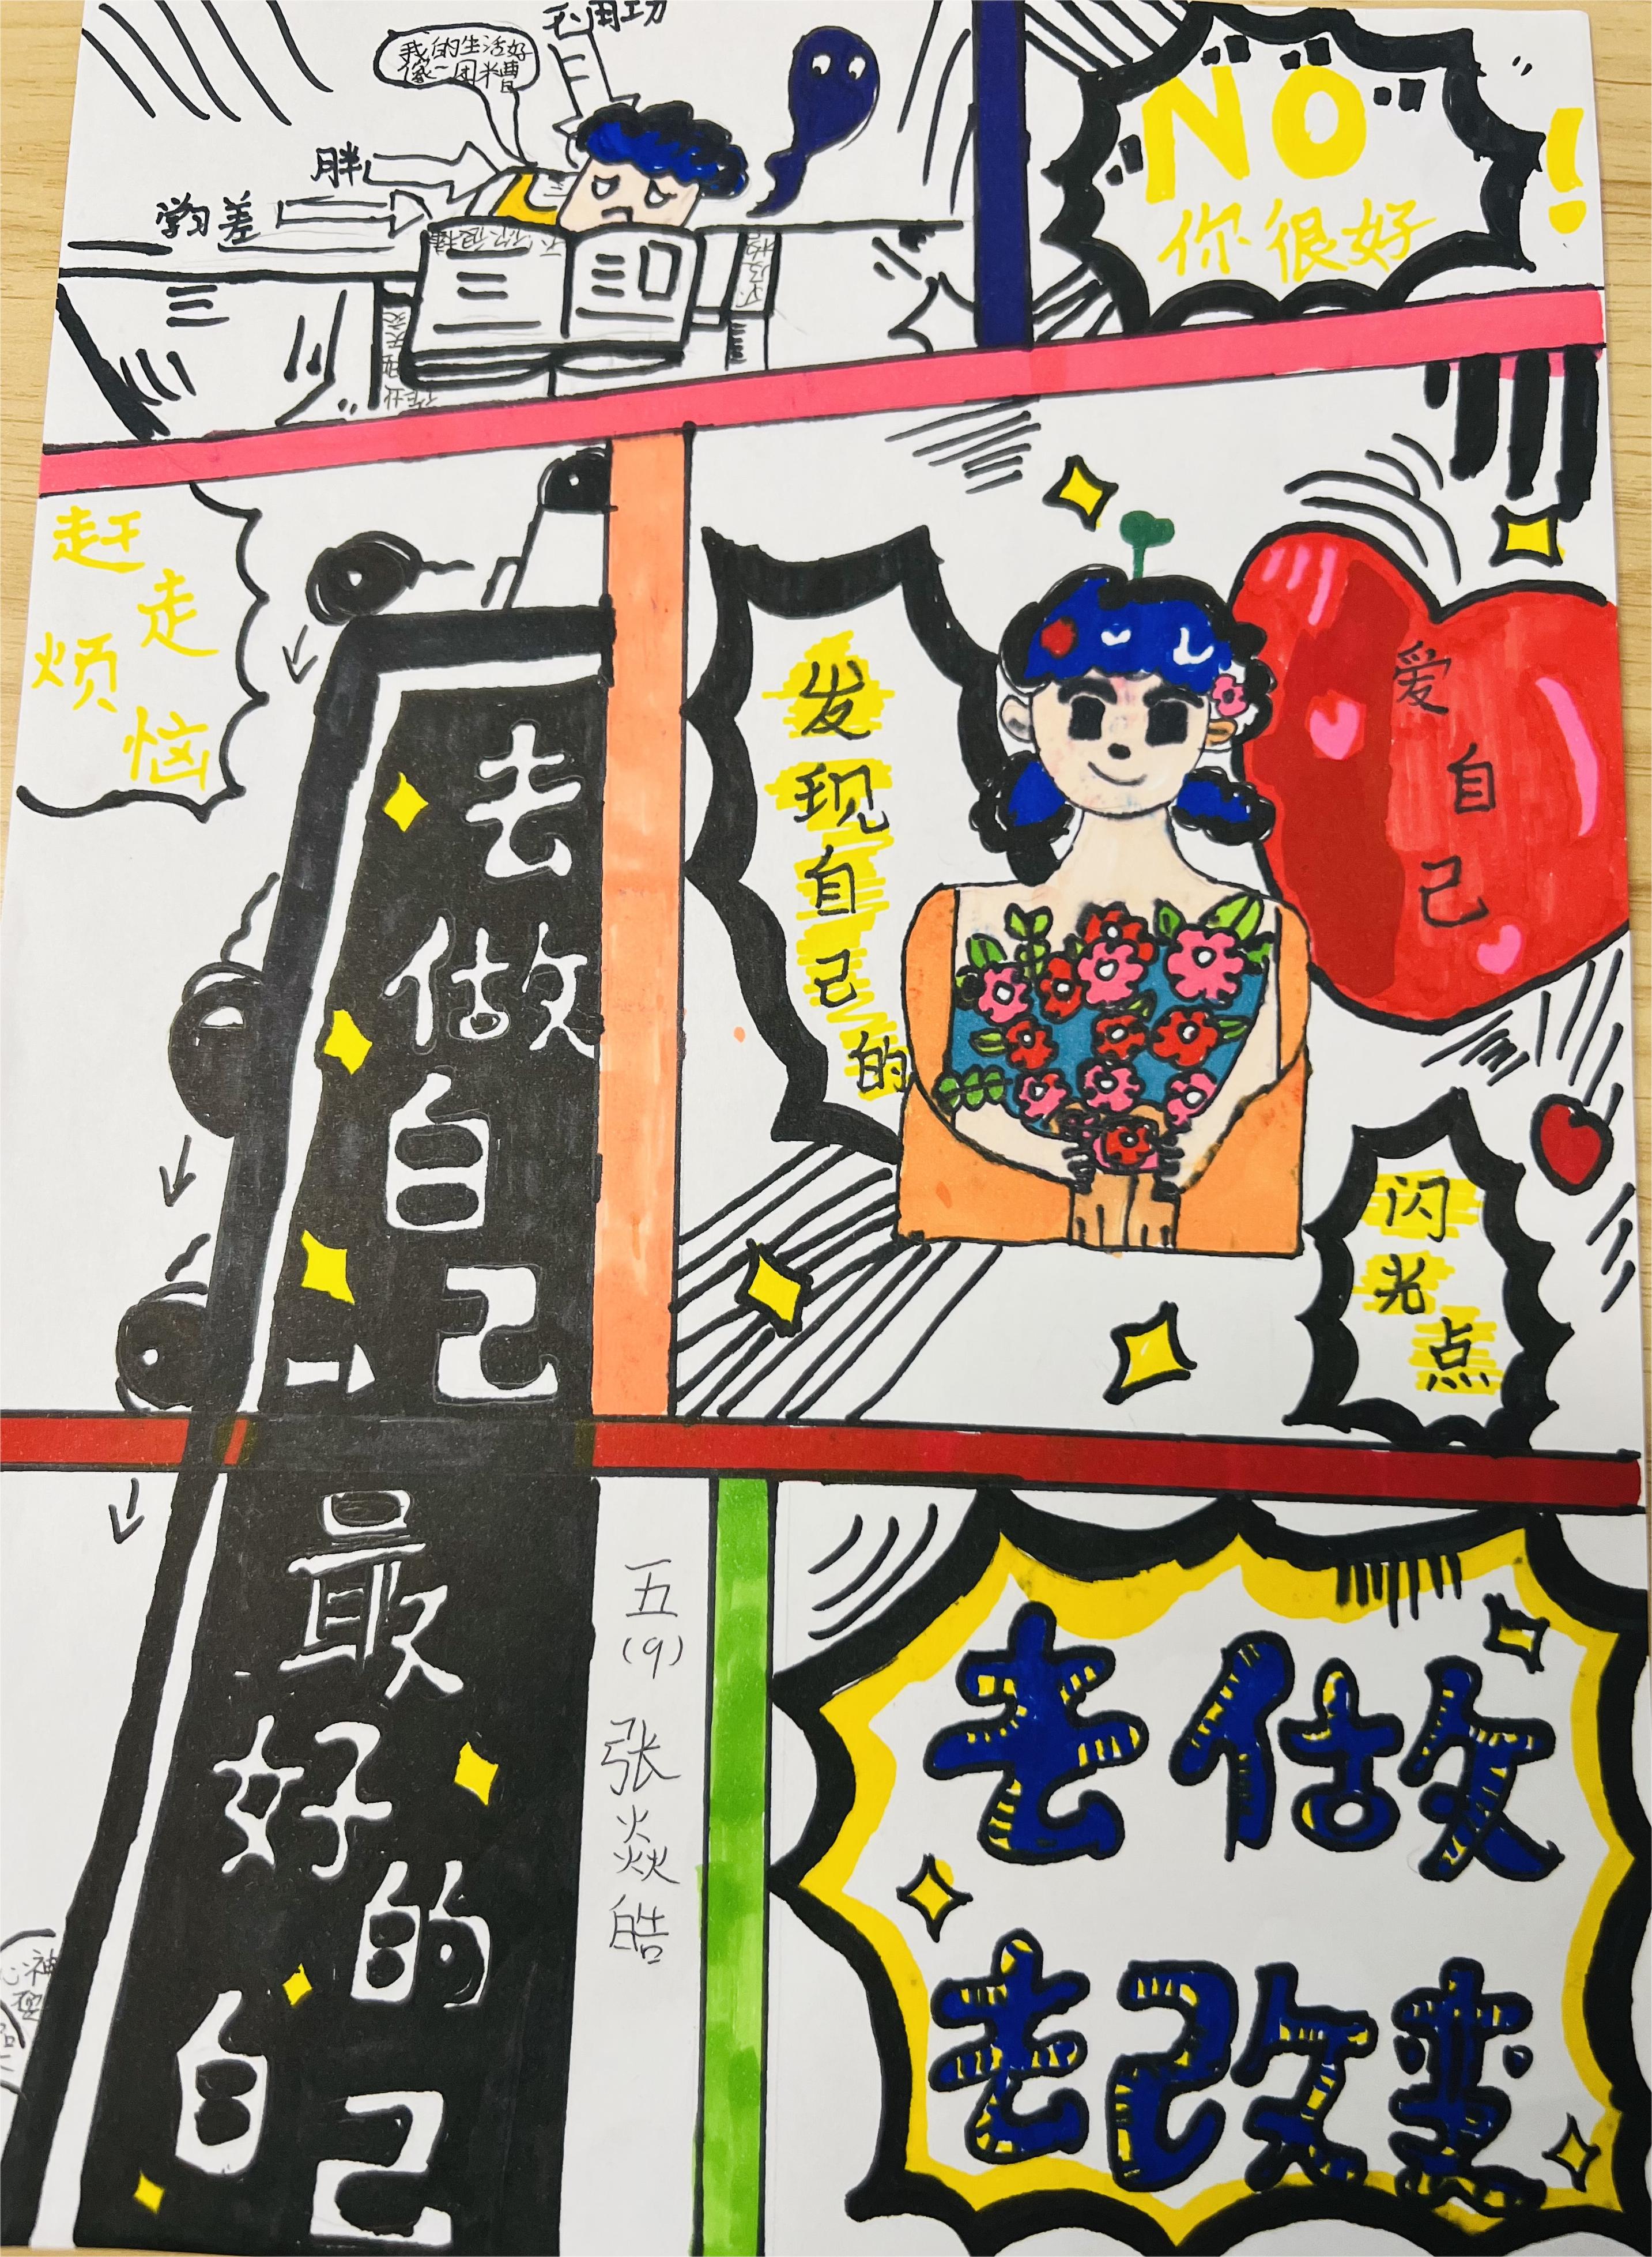 不用功
我的生活好
像一团糟
胖
学习差
NO!
你很好
赶走
烦恼
发现自己的
闪光点
爱自己
去做自己
最好的自己
五(9) 张焱皓
去做
去改变